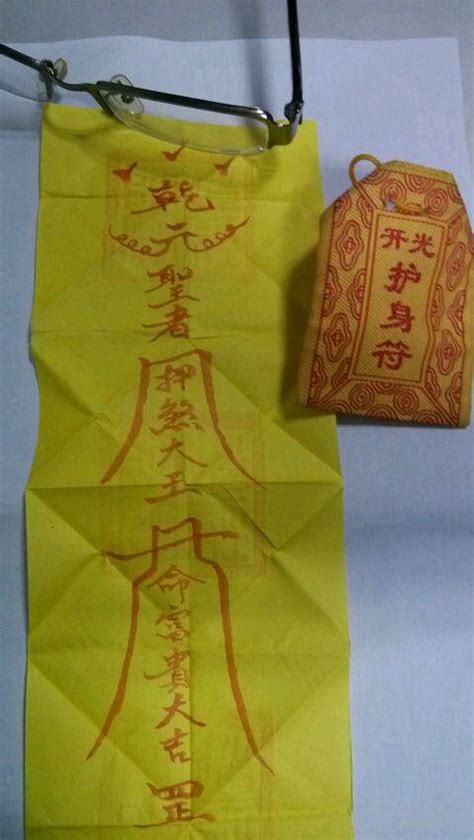 乾元聖者
押煞大王
命富貴大吉
罡
开光
护身符